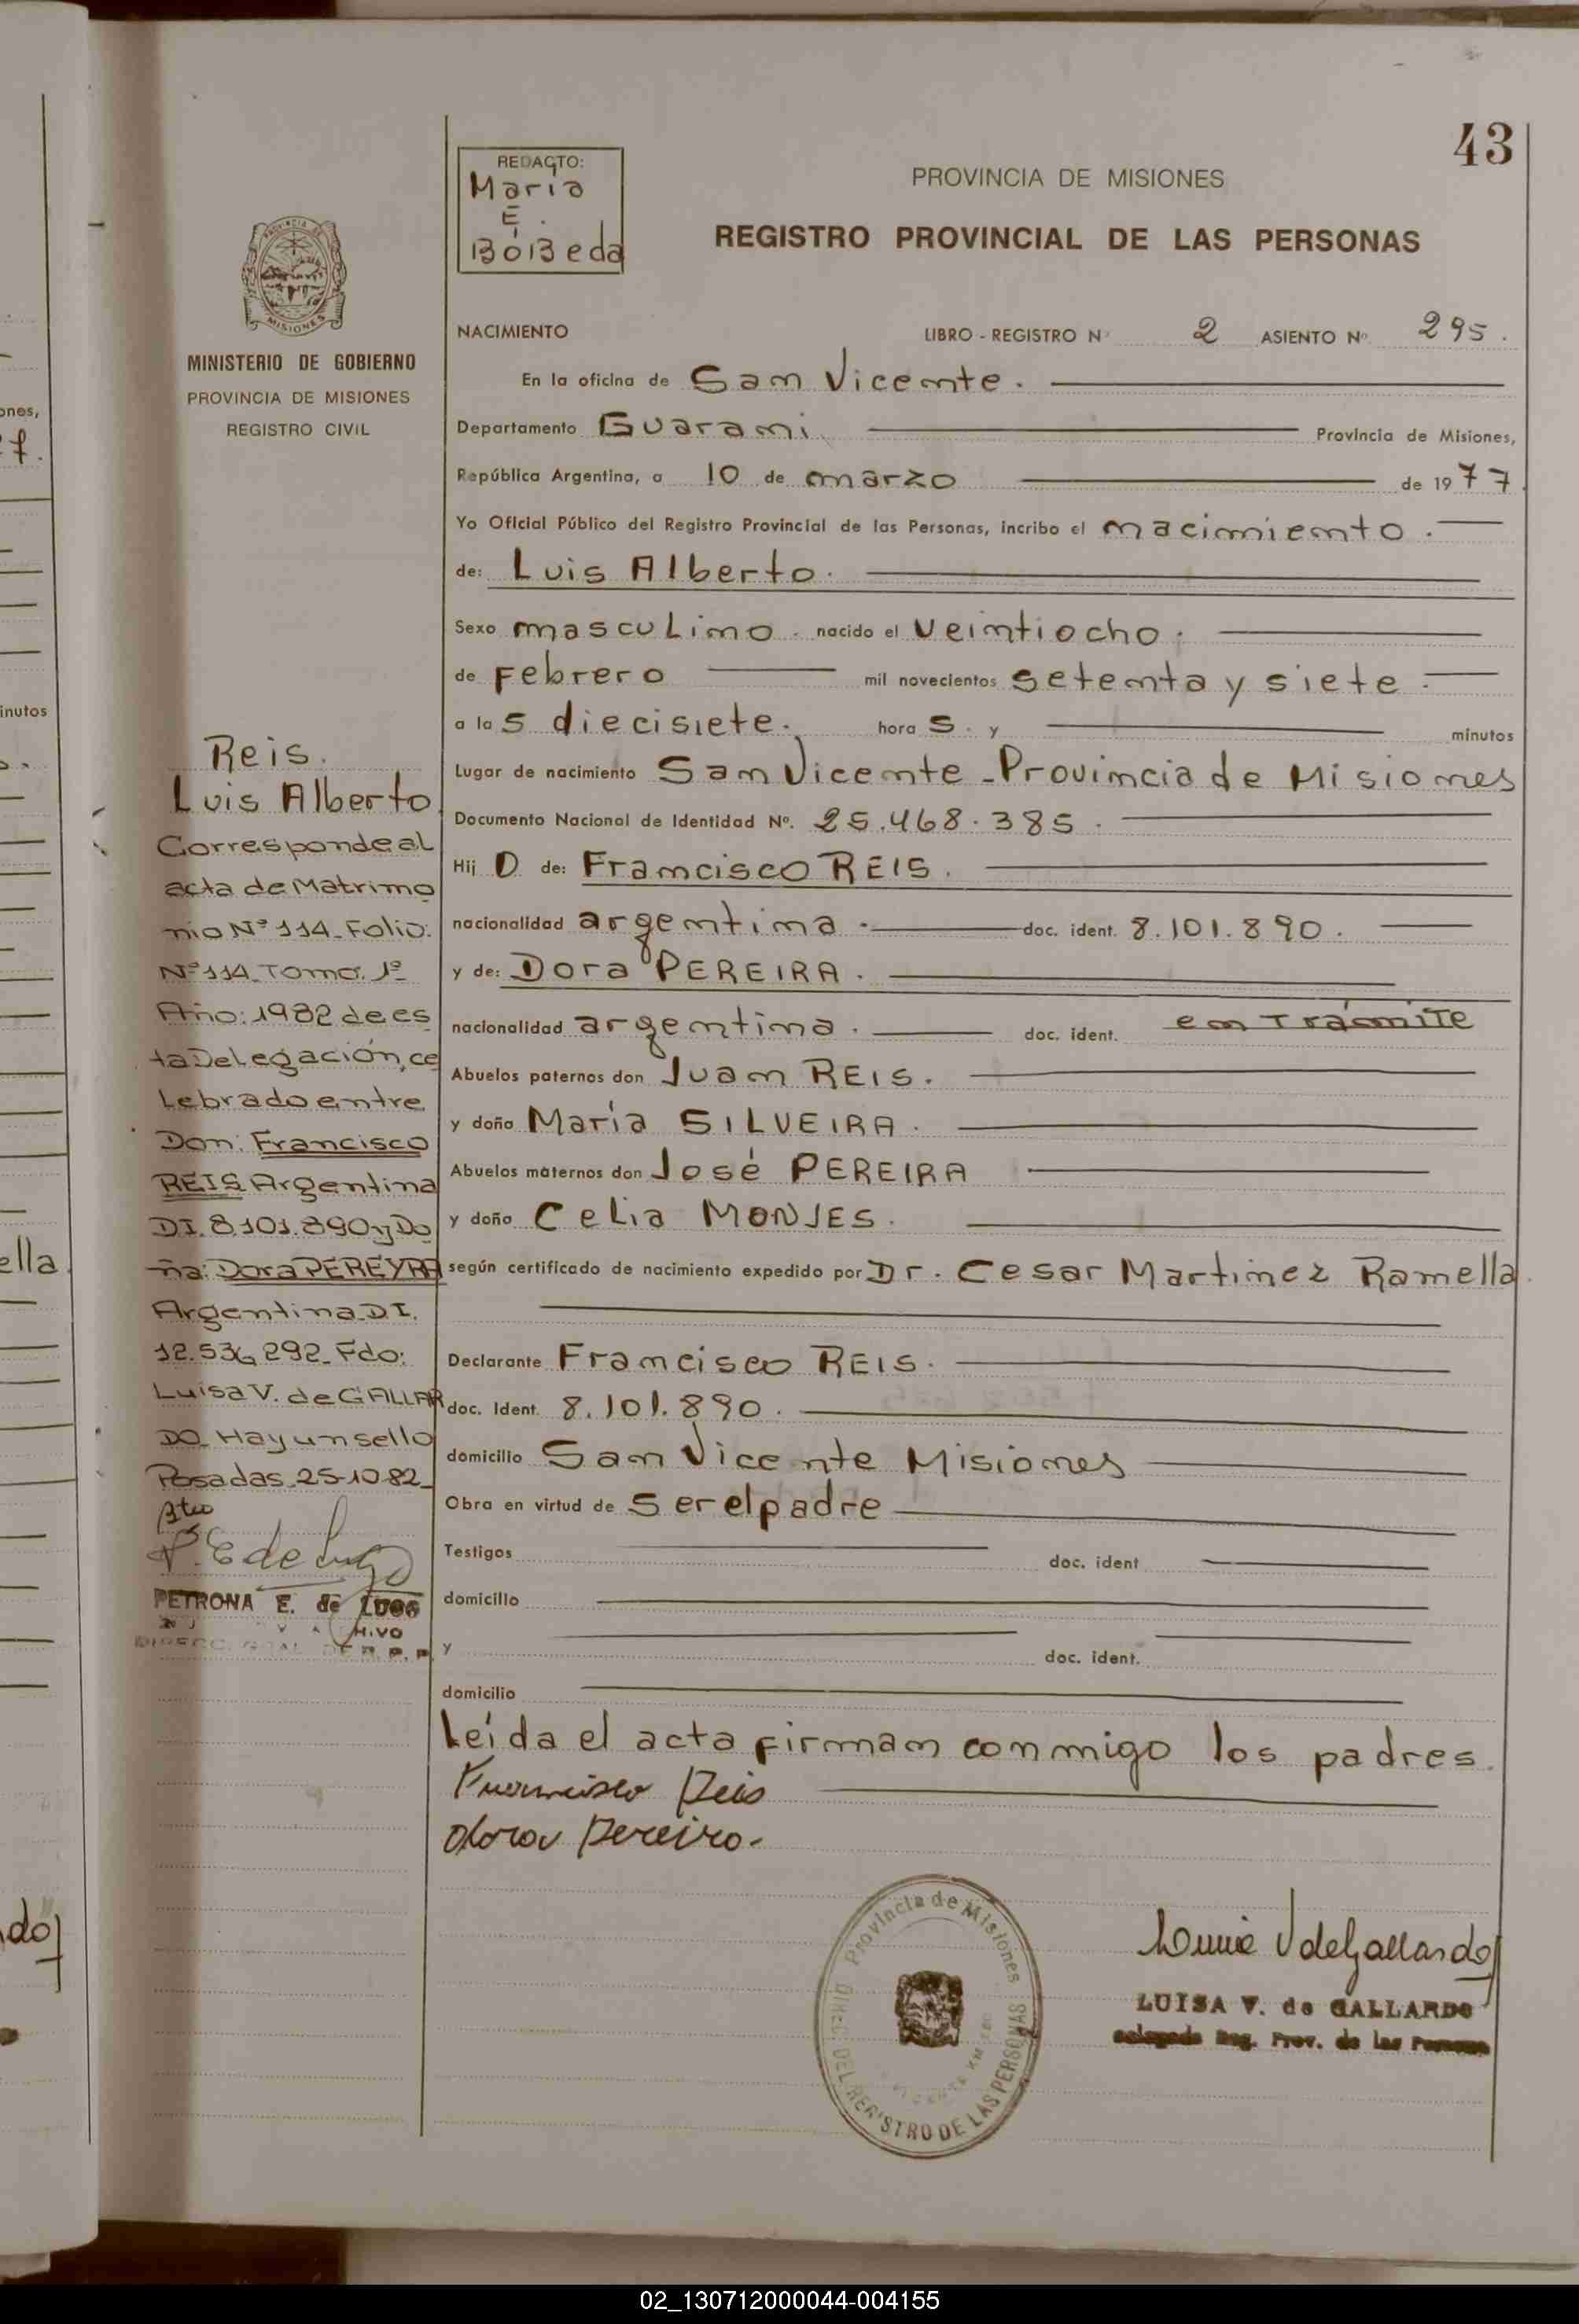 43
REDACTO:
María
E.
BóBeda
PROVINCIA DE MISIONES
REGISTRO PROVINCIAL DE LAS PERSONAS
PROVINCIA DE
MISIONES
MINISTERIO DE GOBIERNO
PROVINCIA DE MISIONES
REGISTRO CIVIL
NACIMIENTO LIBRO - REGISTRO Nº 2 ASIENTO Nº 295.
En la oficina de San Vicente.
Departamento Guaraní Provincia de Misiones,
República Argentina, a 10 de marzo de 1977
Yo Oficial Público del Registro Provincial de las Personas, incribo el nacimiento.
de: Luis Alberto.
Sexo masculino. nacido el veintiocho.
de Febrero mil novecientos setenta y siete.
a las diecisiete. horas. y minutos
Lugar de nacimiento San Vicente - Provincia de Misiones
Documento Nacional de Identidad Nº. 25.468.385.
Hijo de: Francisco REIS.
nacionalidad argentina. doc. ident. 8.101.890.
y de: Dora PEREIRA.
nacionalidad argentina. doc. ident. en Trámite
Abuelos paternos don Juan REIS.
y doña María SILVEIRA.
Abuelos maternos don José PEREIRA
y doña Celia MONJES.
según certificado de nacimiento expedido por Dr. Cesar Martinez Ramella.
Declarante Francisco REIS.
doc. Ident. 8.101.890.
domicilio San Vicente Misiones
Obra en virtud de ser el padre
Testigos doc. ident
domicilio
y doc. ident.
domicilio
Leída el acta firman conmigo los padres.
Francisco Reis
dora Pereira.
Reis.
Luis Alberto
Corresponde al
acta de Matrimo
nio Nº 114_Folio:
Nº 114_Tomo. 1º_
Año: 1982 de es
ta Delegación, ce
Lebrado entre
Don: Francisco
REIS Argentina
DI. 8.101.890 y Do
ña: Dora PEREYRA
Argentina D.I.
12.536,292_Fdo:
Luisa V. de GALLAR
DO_Hay un sello
Posadas_25-10-82_
P. E de Lugo
PETRONA E. de LUGO
Provincia de Misiones
DIREC. DEL REGISTRO DE LAS PERSONAS
Luisa V de Gallardo
LUISA V. de GALLARDO
Delegada Reg. Prov. de las Personas
ones,
inutos
ella
do
02_130712000044-004155